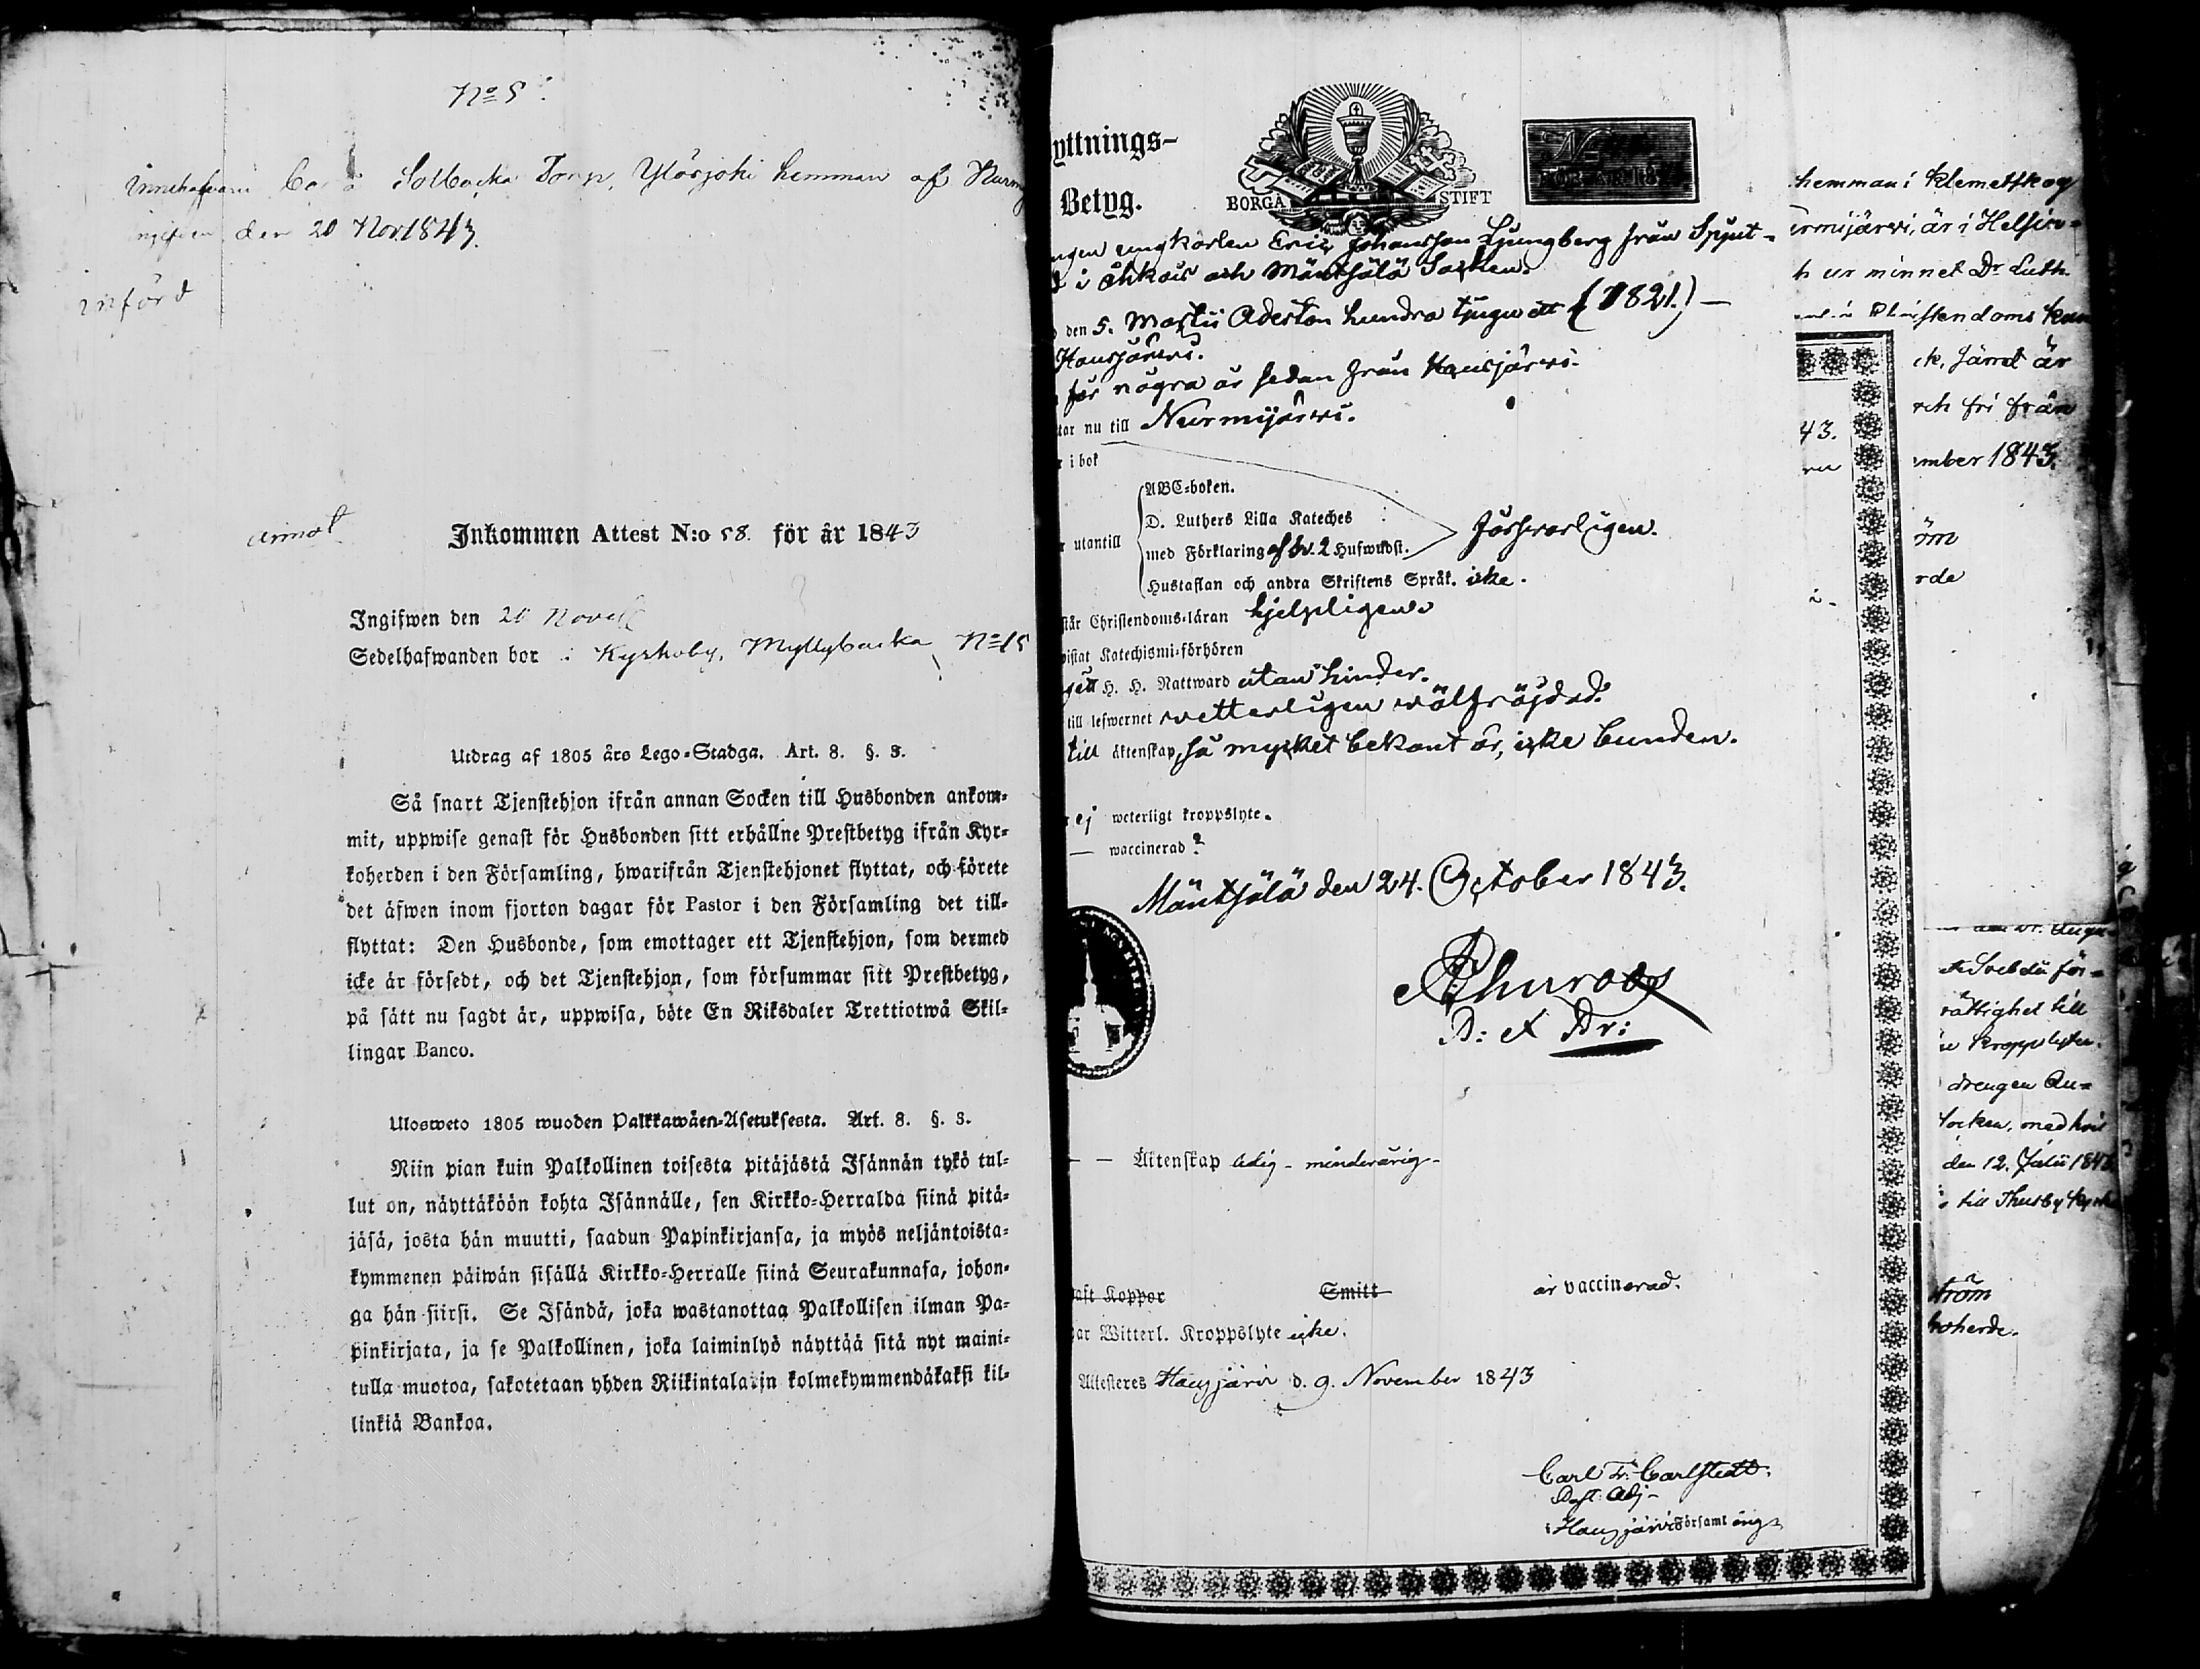 No 5.
Innehafvaren bor å Solbacka Torp, Ylösjoki hemman af Nurm
ingifven den 20 Nov. 1843.
införd
annot
Inkommen Attest N:o 58. för år 1843
Ingifwen den 20 Novemb
Sedelhafwanden bor i Kyrkoby, Myllybacka No 15
Utdrag af 1805 års Lego-Stadga. Art. 8. §. 3.
Så snart Tjenstehjon ifrån annan Socken till Husbonden ankom-
mit, uppwise genast för Husbonden sitt erhållne Prestbetyg ifrån Kyr-
koherden i den Församling, hwarifrån Tjenstehjonet flyttat, och förete
det äfwen inom fjorton dagar för Pastor i den Församling det till-
flyttat: Den Husbonde, som emottager ett Tjenstehjon, som dermed
icke är försedt, och det Tjenstehjon, som försummar sitt Prestbetyg,
på sätt nu sagdt är, uppwisa, böte En Riksdaler Trettiotwå Skil-
lingar Banco.
Ulosweto 1805 wuoden Palkkawäen-Asetuksesta. Art. 8. §. 3.
Niin pian kuin Palkollinen toisesta pitäjästä Isännän tykö tul-
lut on, näyttäköön kohta Isännälle, sen Kirkko-Herralda siinä pitä-
jäsä, josta hän muutti, saadun Papinkirjansa, ja myös neljäntoista-
kymmenen päiwän sisällä Kirkko-Herralle siinä Seurakunnasa, johon-
ga hän siirsi. Se Isändä, joka wastanottaa Palkollisen ilman Pa-
pinkirjata, ja se Palkollinen, joka laiminlyö näyttää sitä nyt maini-
tulla muotoa, sakotetaan yhden Riikintalarin kolmekymmendäkaksi kil-
linkiä Bankoa.
yttnings-
Betyg.
BORGÅ STIFT
FÖR ÅR 18
ngen ungkarlen Eric Johansson Ljungberg från Spjut-
d i Ohkois och Mäntsälä Socken.
den 5. Martii Aderton hundra tjugu ett (1821.) —
Hausjärwi.
för några år sedan från Hausjärwi.
tar nu till Nurmijärwi.
r i bok
ABC-boken.
D. Luthers Lilla Kateches
r utantill
med Förklaring af h. 2 Hufwudst.
försvarligen.
Hustaflan och andra Skriftens Språk. icke.
står Christendoms-läran hjelpligen.
wistat Katechismi-förhören
gått H. H. Nattward utan hinder.
till lefwernet vetterligen wälfräjdad.
till äktenskap, så mycket bekant är, icke bunden.
ej weterligt kroppslyte.
— waccinerad?
Mäntsälä den 24. October 1843.
D: et Pr:
— — Äktenskap ledig - minderårig -
aft Koppor Smitt är vaccinerad.
har Witterl. Kroppslyte icke.
Attesteres Hausjärvi d. 9. November 1843
Carl Fr. Carlstedt.
Past: Adj -
i Hausjärvi Församling
hemman i Klemetskog
urmijärwi, är i Helsin-
h ur minnet Dr Luth.
Christendoms kun
ck, Jämt är
och fri från
43.
mber 1843.
öm
rde
rättighet till
Kroppslyte.
drengen An-
Socken, med hvil
den 12. Julii 184
till Thusby Kyrk
ström
koherde.